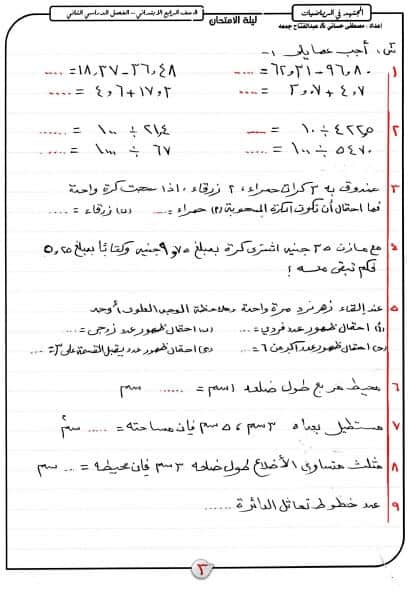 المجتهد في الرياضيات
ليلة الامتحان
الصف الرابع الابتدائي - الفصل الدراسي الثاني
س٢ أجب عما يلى :-
١ ٩٦,٨٠ - ٦٢,٣١ = ...... ٣٦,٤٨ - ١٨,٢٧ = ......
٤,٧ + ٢,٠٧ = ...... ١٧,٢ + ٤,٦ = ......
٢ ٤٢٢٥ ÷ ١٠ = ...... ٢١٤ ÷ ١٠٠ = ......
٥٤٧٠ ÷ ١٠٠ = ...... ٦٧ ÷ ١٠٠٠ = ......
٣ صندوق به ٣ كرات حمراء، ٢ زرقاء، اذا سحبت كرة واحدة
فما احتمال أن تكون الكرة المسحوبة (٢) حمراء = ...... (ب) زرقاء = ......
٤ مع مازن ٣٥ جنيه اشترى كرة بمبلغ ٩,٧٥ جنيه وكتابًا بمبلغ ٥,٢٥
فكم تبقى معه ؟!
٥ عند إلقاء زهر نرد مرة واحدة وملاحظة الوجه العلوى أوجد
(١) احتمال ظهور عدد فردي = ... (ب) احتمال ظهور عدد زوجى = ...
(ج) احتمال ظهور عدد أكبر من ٦ = ... (د) احتمال ظهور عدد يقبل القسمة على ٣ = ...
٦ محيط مربع طول ضلعه ١ سم = ...... سم
٧ مستطيل بعداه ٣ سم ، ٥ سم فإن مساحته = ...... سم٢
٨ مثلث متساوى الأضلاع طول ضلعه ٣ سم فإن محيطه = ... سم
٩ عدد خطوط تماثل الدائرة ......
٢